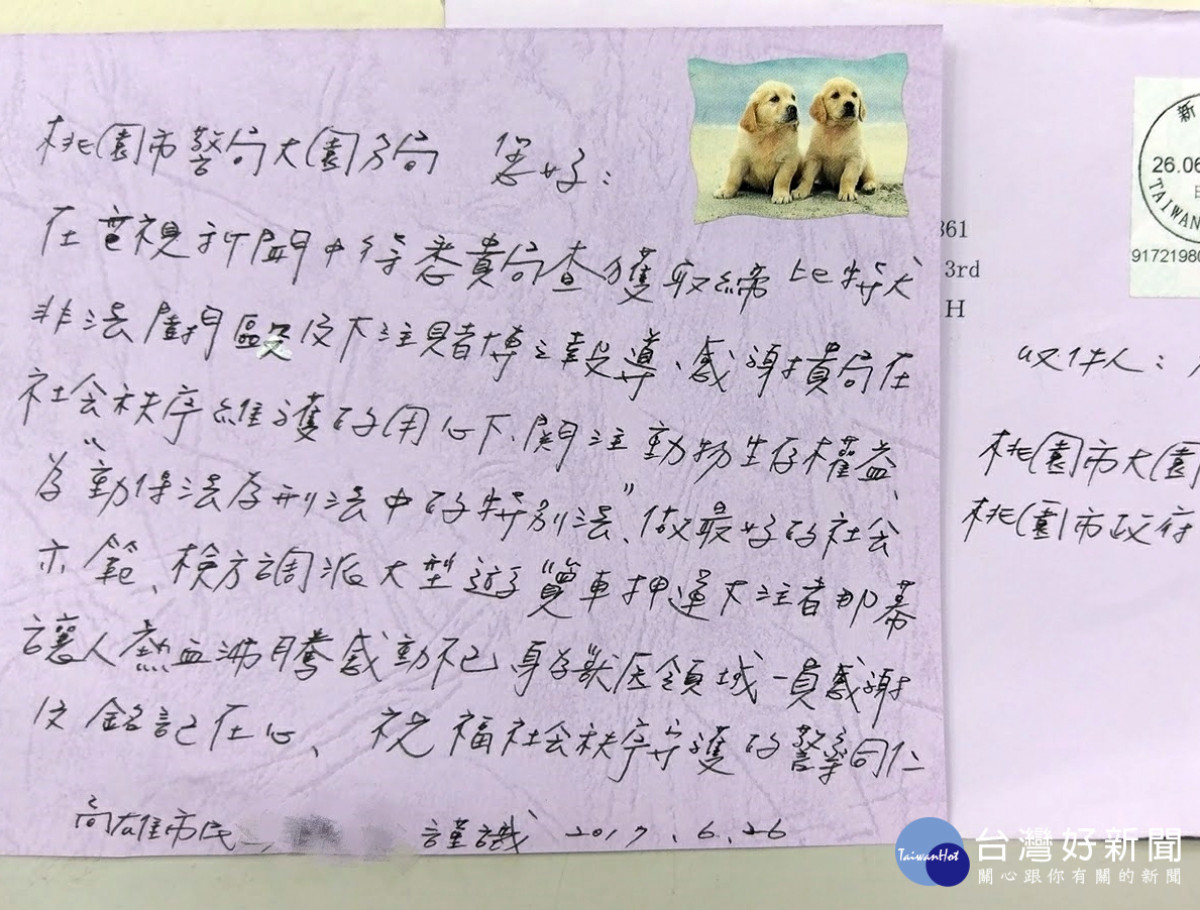 桃園市警局大園分局 您好:
在電視新聞中得悉貴局查獲取締比特犬
非法鬥毆及下注賭博之報導、感謝貴局在
社會秩序維護的用心下、關注動物生存權益、
為"動保法為刑法中的特別法"、做最好的社會
示範、檢方調派大型遊覽車押運大注者那幕
讓人熱血沸騰感動不已 身為獸医領域一員感謝
仅銘記在心、祝福社会秩序守護的警察同仁
高雄市民
謹識 2017.6.26
361
3rd
H
新
26.06
TAIWAN
9172198
收件人:
桃園市大園
桃園市政府
TaiwanHot
台灣好新聞
關心跟你有關的新聞